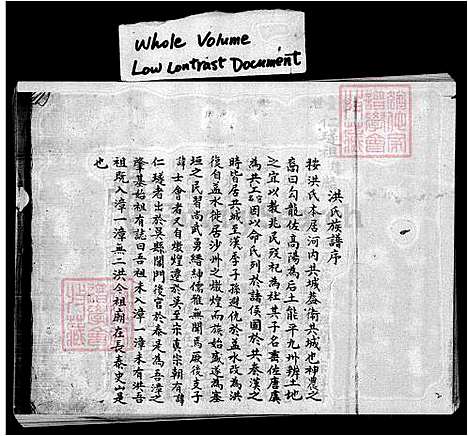 Whole Volume
Low Contrast Document
洪氏族譜序
按洪氏本居河内共城葢衛共城也神農之
裔曰勾龍佐高陽為后土能平九州辨土地
之宜以教兆民殁祀為社其子名壽佐唐虞
為共工因以命氏列於諸侯國於共秦漢之
時皆居共城至漢季子孫避仇於益水改為洪
後自益水徙居沙州之燉煌而族始盛遂為塞
垣之民習尚武勇縉紳儒雅無聞焉厥後支子
諱士會者又自燉煌遷於吳至宋真宗朝有諱
仁璲者出於吳縣閶門後官於泰是為吾漳之
肇基始祖有誌曰吾祖未入漳一漳未有洪吾
祖既入漳一漳無二洪今祖廟在長泰史山是
也